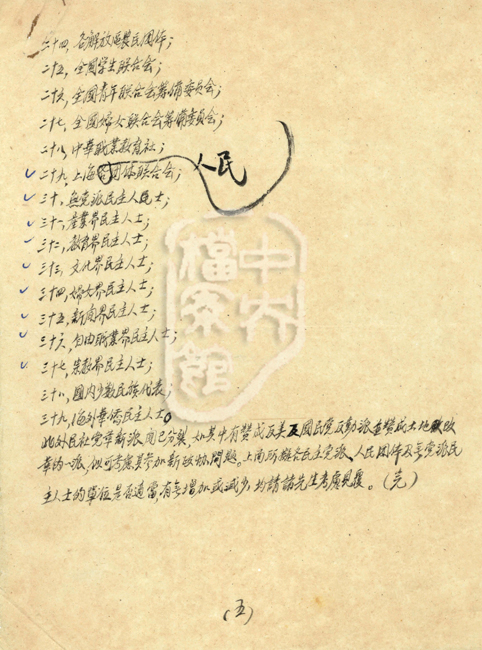 二十四,各解放區農民團体;
二十五,全國學生联合会;
二十六,全國青年联合会筹備委员会;
二十七,全國婦女联合会筹備委员会;
二十八,中華職業教育社;
二十九,上海人民团体联合会;
三十,無党派民主人士;
三十一,產業界民主人士;
三十二,教育界民主人士;
三十三,文化界民主人士;
三十四,婦女界民主人士;
三十五,新闻界民主人士;
三十六,自由職業界民主人士;
三十七,宗教界民主人士;
三十八,國内少数民族代表;
三十九,海外華僑民主人士。
此外民社党革新派闻已分裂,如其中有赞成反美及國民党反動派並赞成土地改
革的一派,似可考慮其参加新政协問題。上面所列各民主党派、人民团体及無党派民
主人士的單位是否適當,有無增加或減少,均請諸先生考慮見覆。(完)
(五)
中央
檔案館